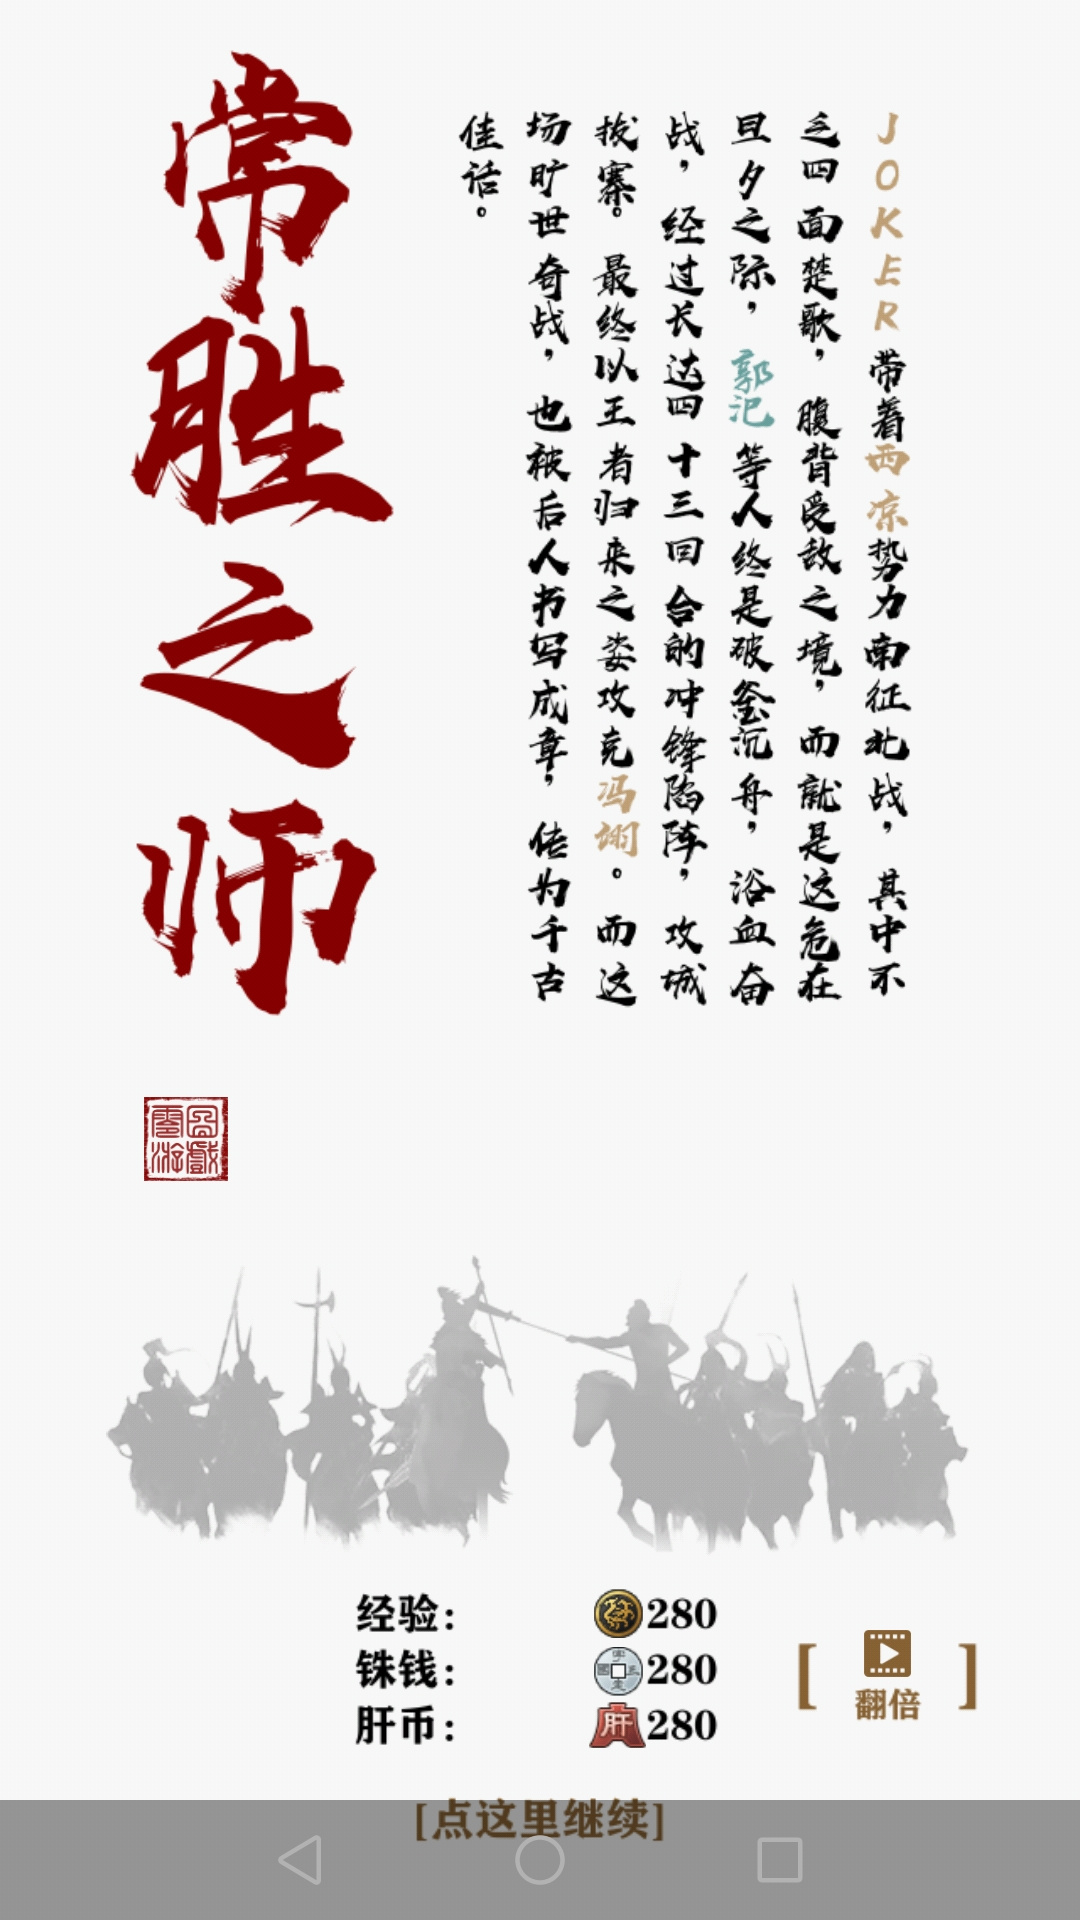 常胜之师
JOKER带着西凉势力南征北战，其中不
乏四面楚歌，腹背受敌之境，而就是这危在
旦夕之际，郭汜等人终是破釜沉舟，浴血奋
战，经过长达四十三回合的冲锋陷阵，攻城
拔寨。最终以王者归来之姿攻克冯翊。而这
场旷世奇战，也被后人书写成章，传为千古
佳话。
经验：280
铢钱：280
肝币：肝280
[翻倍]
[点这里继续]